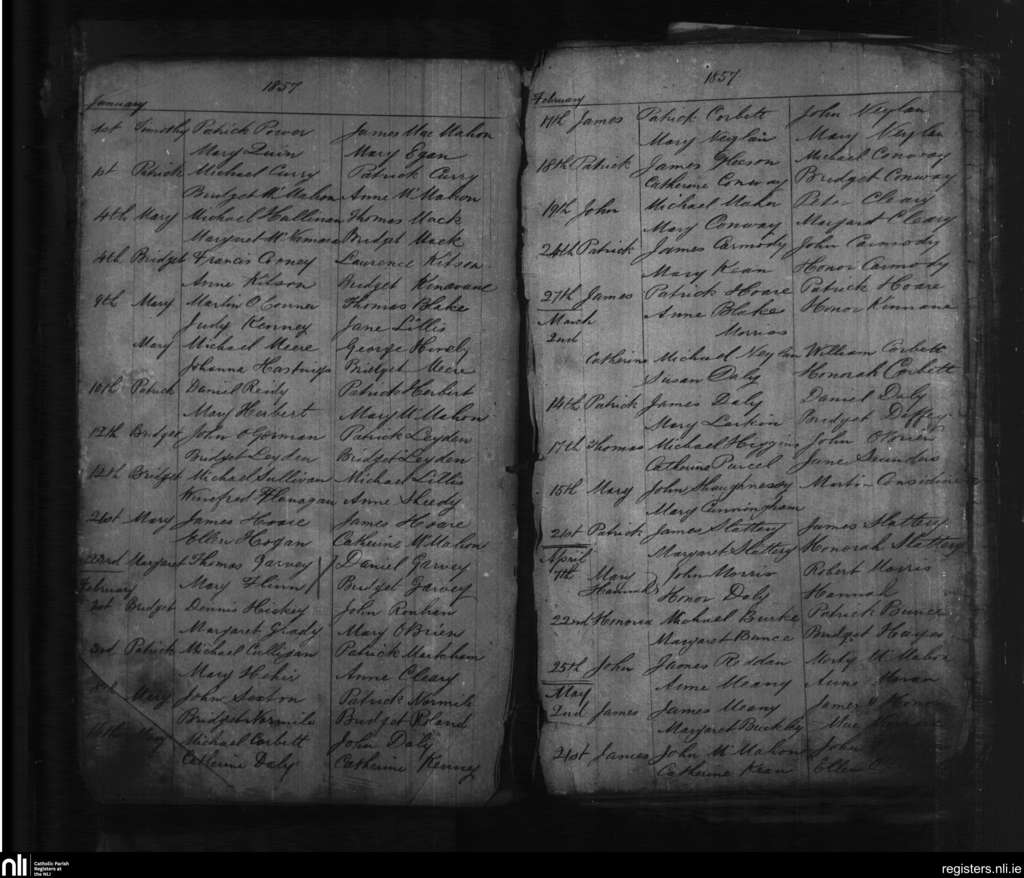 1857
January
1st Timothy Patrick Power James Mac Mahon
Mary Quin Mary Egan
1st Patrick Michael Curry Patrick Curry
Bridget McMahon Anne McMahon
4th Mary Michael Hallinan Thomas Mack
Margaret McNamara Bridget Mack
4th Bridget Francis Cooney Laurence Kitson
Anne Kitson Bridget
9th Mary Martin O Conner Thomas Blake
Judy Kenney Jane Lillis
Mary Michael Meere George
Johanna Hastings Bridget Meere
10th Patrick Daniel Reidy Patrick Herbert
Mary Herbert Mary McMahon
12th Bridget John O Gorman Patrick Leyden
Bridget Leyden Bridget Leyden
12th Bridget Michael Sullivan Michael Lillis
Winefred Flanagan Anne Sheedy
21st Mary James Hoare James Hoare
Ellen Hogan Catherine McMahon
23rd Margaret Thomas Garvey Daniel Garvey
Mary Flinn Bridget Garvey
February
1st Bridget Dennis Hickey John
Margaret Grady Mary O Brien
3rd Patrick Michael Culligan Patrick Markham
Mary Hehir Anne Cleary
Mary John Sexton Patrick Normile
Bridget Normile Bridget Boland
Mary Michael Corbett John Daly
Catherine Daly Catherine Kenney
1857
February
17th James Patrick Corbett John Neylan
Mary Neylan Mary Neylan
18th Patrick James Gleeson Michael Conway
Catherine Conway Bridget Conway
19th John Michael Mahon Peter Cleary
Mary Conway Margaret Cleary
24th Patrick James Carmody John Carmody
Mary Kean Honor Carmody
27th James Patrick Hoare Patrick Hoare
Anne Blake Honor Kinnane
March
2nd Morris
Catherine Michael Neylan William Corbett
Susan Daly Honorah Corbett
14th Patrick James Daly Daniel Daly
Mary Larkin Bridget Deffey
17th Thomas Michael Higgins John O Brien
Catherine Purcel Jane Saunders
15th Mary John Shaughnessy Martin Considine
Mary Cunningham
21st Patrick James Slattery James Slattery
Margaret Slattery Honorah Slattery
April
7th Mary John Morris Robert Morris
Hannah Honor Daly Hannah
22nd Honoria Michael Burke Patrick Bunce
Margaret Bunce Bridget Hayes
25th John James Reddan Morty McMahon
Anne Meany Anne Horan
May
2nd James James Meany James
Margaret Buckley
21st James John McMahon John
Catherine Kean Ellen
nli Catholic Parish
Registers at
the NLI
registers.nli.ie